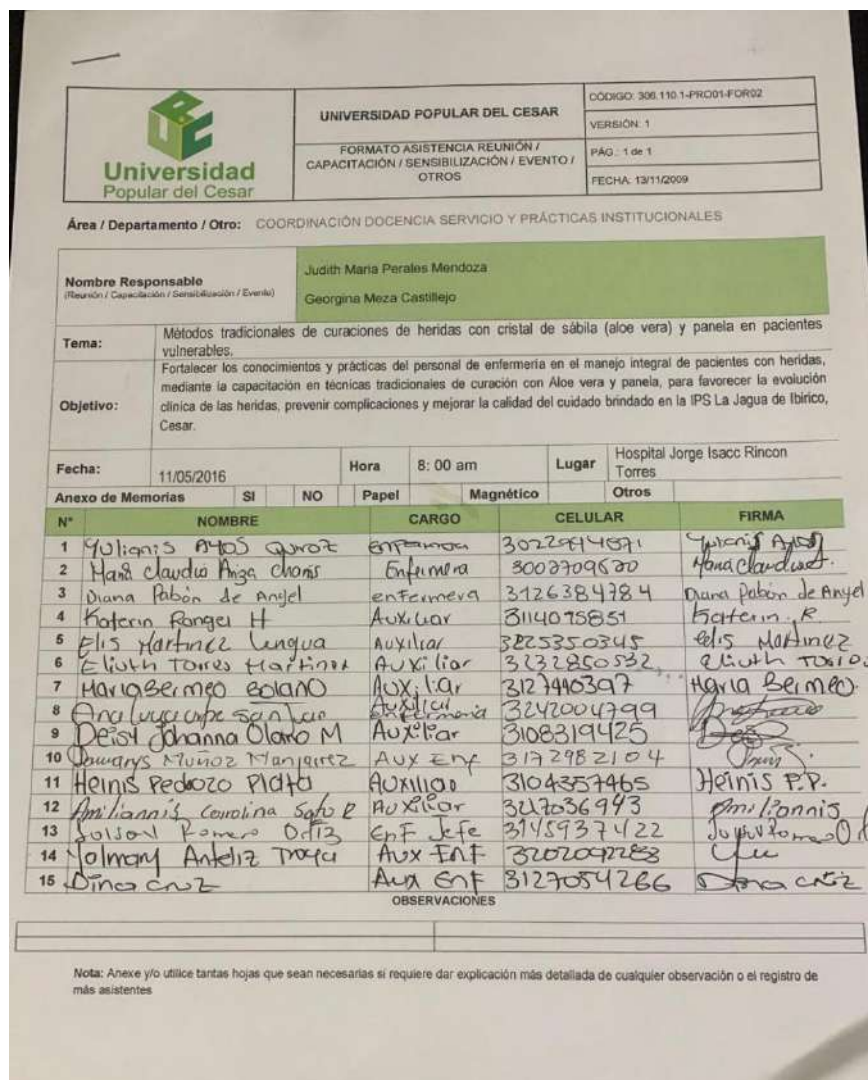 Universidad
Popular del Cesar
UNIVERSIDAD POPULAR DEL CESAR
FORMATO ASISTENCIA REUNIÓN /
CAPACITACIÓN / SENSIBILIZACIÓN / EVENTO /
OTROS
CÓDIGO: 306.110.1-PRO01-FOR02
VERSIÓN: 1
PÁG.: 1 de 1
FECHA: 13/11/2009
Área / Departamento / Otro: COORDINACIÓN DOCENCIA SERVICIO Y PRÁCTICAS INSTITUCIONALES
Nombre Responsable
(Reunión / Capacitación / Sensibilización / Evento)
Judith Maria Perales Mendoza
Georgina Meza Castillejo
Tema:
Métodos tradicionales de curaciones de heridas con cristal de sábila (aloe vera) y panela en pacientes
vulnerables.
Objetivo:
Fortalecer los conocimientos y prácticas del personal de enfermería en el manejo integral de pacientes con heridas,
mediante la capacitación en técnicas tradicionales de curación con Aloe vera y panela, para favorecer la evolución
clínica de las heridas, prevenir complicaciones y mejorar la calidad del cuidado brindado en la IPS La Jagua de Ibirico,
Cesar.
Fecha: 11/05/2016 Hora 8: 00 am Lugar Hospital Jorge Isacc Rincon
Torres
Anexo de Memorias SI NO Papel Magnético Otros
N° NOMBRE CARGO CELULAR FIRMA
1 Yulianis Ayos
2 Claudia Enfermera 3002709620
3 Diana Pabón de Angel enfermera 3126384784 Diana Pabón de Angel
4 Katerin Rangel H Auxiliar 3114075851 Katerin R
5 Elis Martinez Lengua Auxiliar 3225350345 Elis Martinez
6 Eliuth Torres Martinez Auxiliar 3232850532 Eliuth Torres
7 Maria Bermeo Bolaño Auxiliar 3127440397 Maria Bermeo.
8 Auxiliar enfermeria 3242004799
9 Deisy Johanna Olano M Auxiliar 3108319425
10 Muñoz Manjarrez Aux Enf 3172982104
11 Heinis Pedrozo Plata Auxiliar 3104357465 Heinis P.P.
12 Carolina Auxiliar 3217036943
13 Romero Ortiz Enf Jefe 3145937422
14 Yolmary Anteliz Aux Enf 3202092288
15 Dina Cruz Aux Enf 3127054266 Dina Cruz
OBSERVACIONES
Nota: Anexe y/o utilice tantas hojas que sean necesarias si requiere dar explicación más detallada de cualquier observación o el registro de
más asistentes